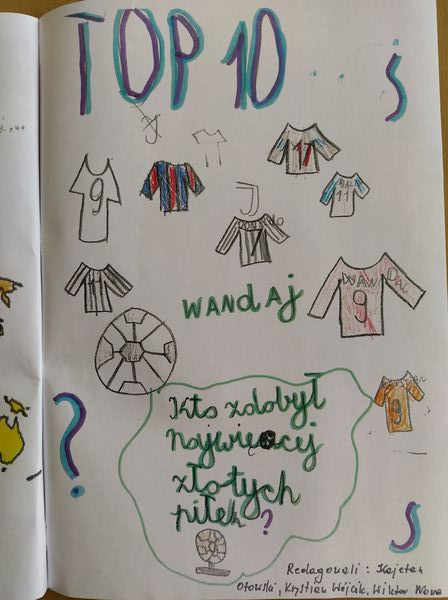 TOP 10
17
9
BAL
11
7
11
WANDAJ
9
9
Kto zdobył
najwięcej
złotych
piłek?
?
Redagowali: Kajetan
Otowski, Krystian Wójcik, Wiktor